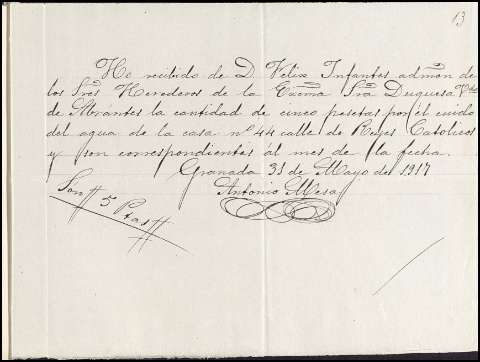 13
He recibido de D. Felix Infantes admon de
los Sres Herederos de la Exema Sra Duquesa Vda
de Abrantes la cantidad de cinco pesetas por el cuido
del agua de la casa nº 44 calle de Reyes Catolicos
y son correspondientes al mes de la fecha.
Granada 31 de Mayo de 1917
Antonio Mesa
Son # 5 Ptas #